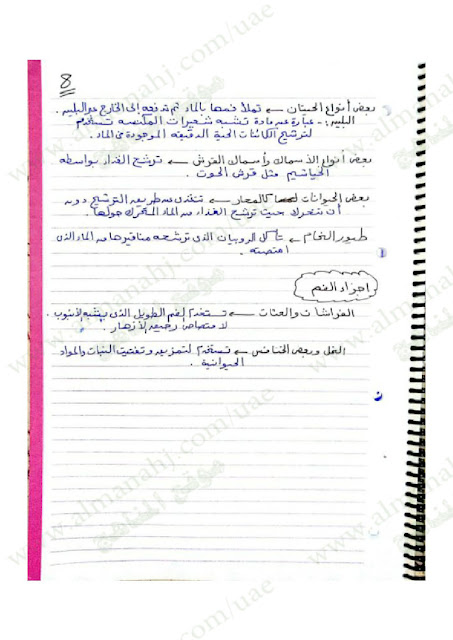 8
بعض أنواع الحيتان ← تملأ فمها بالماء ثم تدفعه إلى الخارج عبر البلين .
البلين :- عبارة عن مادة تشبه شعيرات المكنسة تستخدم
لترشيح الكائنات الحية الدقيقة الموجودة في الماء .
بعض أنواع الأسماك وأسماك القرش ← ترشح الغذاء بواسطة
الخياشيم مثل قرش الحوت .
بعض الحيوانات كالمحار ← تتغذى عن طريق الترشيح دون
أن تتحرك حيث ترشح الغذاء من الماء المتحرك حولها .
طيور النحام ← تأكل الروبيان الذي ترشحه مناقيرها من الماء الذي
امتصته .
اجزاء الفم
الفراشات والعثات ← تستخدم الفم الطويل الذي يشبه الأنبوب
لامتصاص رحيق الأزهار .
النمل وبعض الخنافس ← تستخدم لتمزيق وتفتيت النبات والمواد
الحيوانية .
موقع المناهج
www.almanahj.com/uae